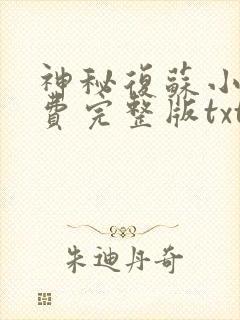 神秘復蘇小
費完整版txt
朱迪丹奇